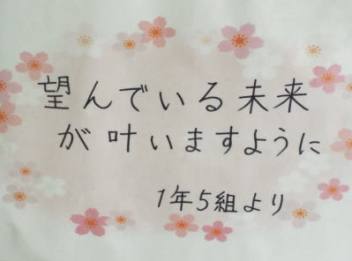 望んでいる未来
が叶いますように
1年5組より